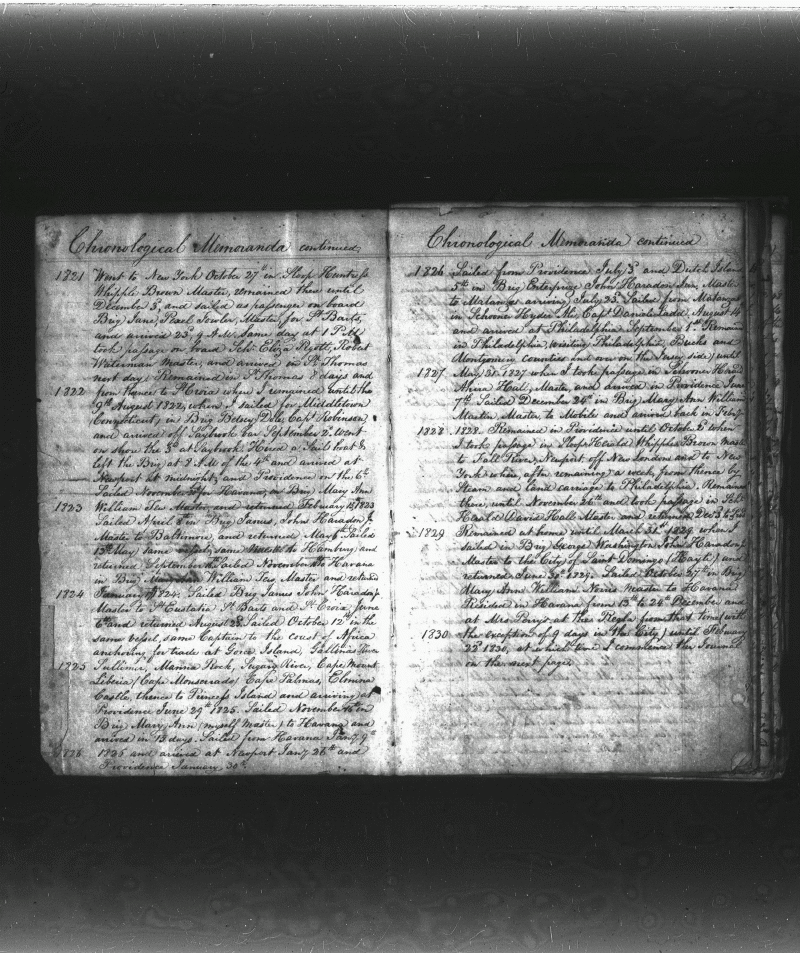 Chronological Memoranda continued
1821 Went to New York October 27th in Sloop Huntress
Whipple Brown Master, remained there until
December 3d, and sailed as passenger on board
Brig Jane, Pearl Fowler, Master, for St Barts,
and arrived 23d, 9 A.M. Same day at 1 P.M
took passage on board Schr Eliza, Robt
Waterman Master, and arrived in St Thomas
next day. Remained in St Thomas 8 days and
1822 from thence to St Croix where I remained until the
9th August 1822, when I sailed for Middletown
(Connecticut) in Brig Betsey Dole, Capt Robinson,
and arrived off Saybrook bar September 2d. went
on shore the 3d at Saybrook. Hired a Sail boat &
left the Brig at 8 A.M of the 4th and arrived at
Newport at midnight, and Providence on the 6th.
Sailed November for Havana, in Brig Mary Ann
1823 William Master and returned February 1823
Sailed April in Brig James, John Haradon Jr
Master to Baltimore, and returned May Sailed
13th May, same same to Hamburg and
returned September Sailed November to Havana
in Brig William Master and returned
1824 January 1824. Sailed Brig James John Haradon Jr
Master to St Eustatia St Barts and St Croix, June
6th and returned August 28 Sailed October 12th in the
same vessel, same Captain to the coast of Africa
anchoring for trade at Goree Island, Gallenas River
1825 Manna Rock, Sugary River, Cape Mount
Liberia (Cape Monserado) Cape Palmas, Elmina
Castle, thence to Princess Island and arriving at
Providence June 29th 1825. Sailed November in
Brig Mary Ann (myself Master) to Havana and
arrived in 13 days. Sailed from Havana Jany 9th
1826 1826 and arrived at Newport Jany 26th and
Providence January 30th
Chronological Memoranda continued
1826 Sailed from Providence July 3d and Dutch Island
5th in Brig Enterprize John Haradon Jun, Master
to Matanzas arriving July 23d. Sailed from Matanzas
in Schooner Hyder Ally Capt Daniel Ladd August 4
and arrived at Philadelphia September 1st. Remained
in Philadelphia, visiting Philadelphia, Bucks and
Montgomery counties and over on the Jersey side) until
1827 May 31 1827 when I took passage in Schooner
Hall, Master, and arrived in Providence June
7th. Sailed December 24th in Brig Mary Ann William
Martin Master, to Mobile and arrived back in Feby
1828 1828. Remained in Providence until October 8 when
I took passage in Sloop Herald Whipple Brown Mast
to Fall River, Newport off New London and to New
York where, after remaining a week, from thence by
Steam and land carriage to Philadelphia. Remained
there, until November 26th and took passage in Schr
Herald David Hall Master and returned Dec
1829 Remained at home until March 31st 1829 when I
sailed in Brig George Washington John Haradon Jr
Master to the City of Saint Domingo (Hayti) and
returned June 30th 1829. Sailed October 27th in Brig
Mary Ann William Norris Master to Havana
Resided in Havana from 13th to 24th December and
at Mrs Perry's at the Regla from that time (with
1830 the exception of 9 days in the City) until February
22d 1830, at which time I commence the Journal
on the next page